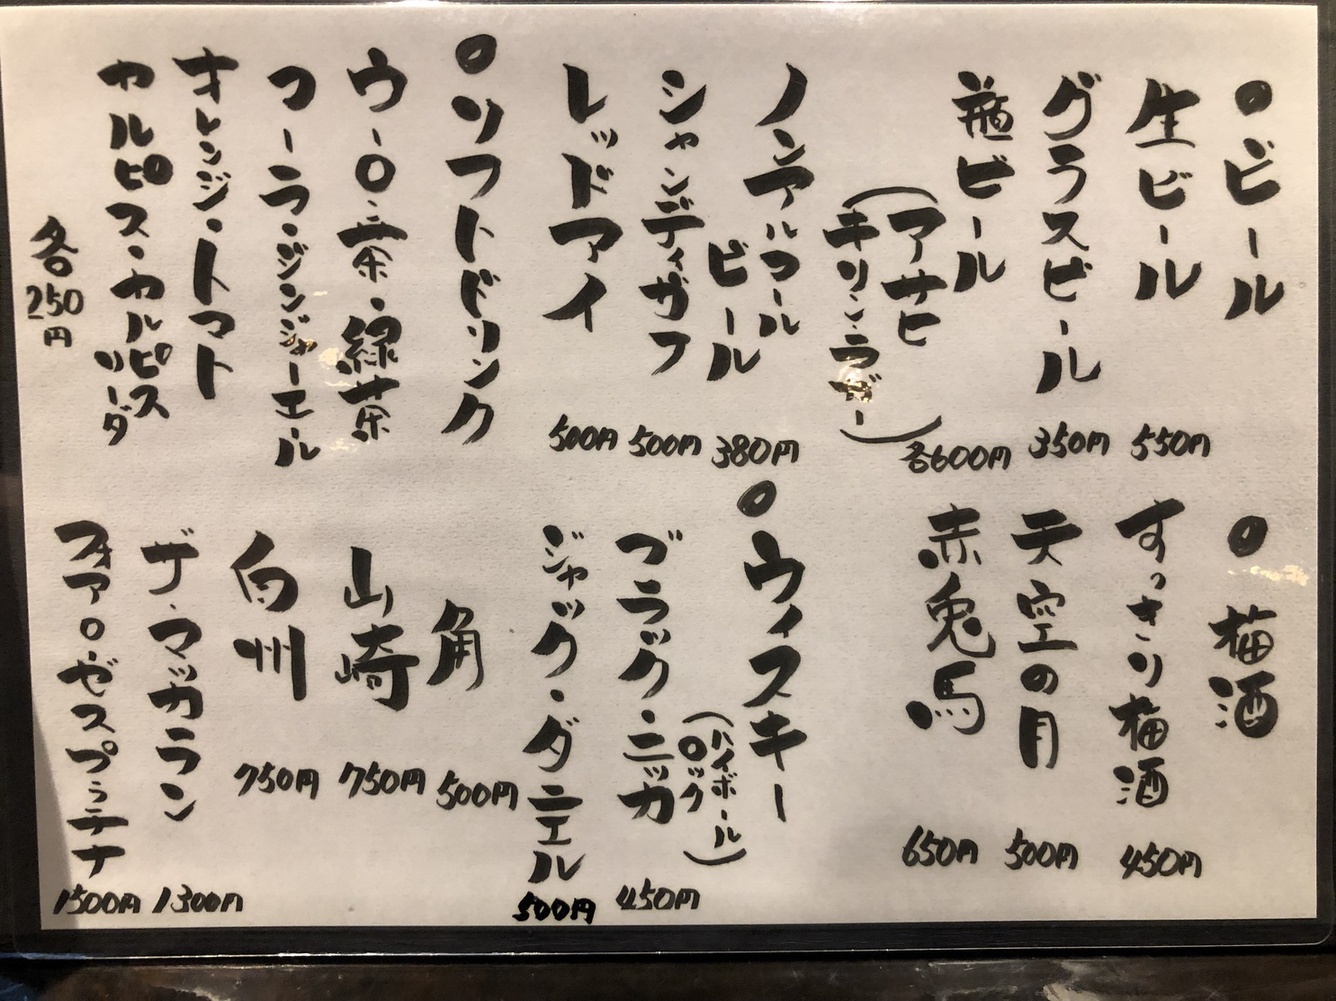 ○ビール
生ビール 550円
グラスビール 350円
瓶ビール
(アサヒ
キリン・ラガー) 各600円
ノンアルコール
ビール 380円
シャンディガフ 500円
レッドアイ 500円
○ソフトドリンク
ウーロン茶・緑茶
コーラ・ジンジャーエール
オレンジ・トマト
カルピス・カルピス
ソーダ
各250円
○梅酒
すっきり梅酒 450円
天空の月 500円
赤兎馬 650円
○ウィスキー
(ハイボール
ロック)
ブラック・ニッカ 450円
ジャック・ダニエル 500円
角 500円
山崎 750円
白州 750円
ザ・マッカラン 1300円
フォアローゼスプラチナ 1500円